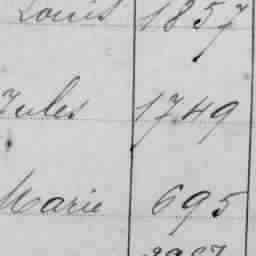 Louis 1857
Jules 1749
Marie 695